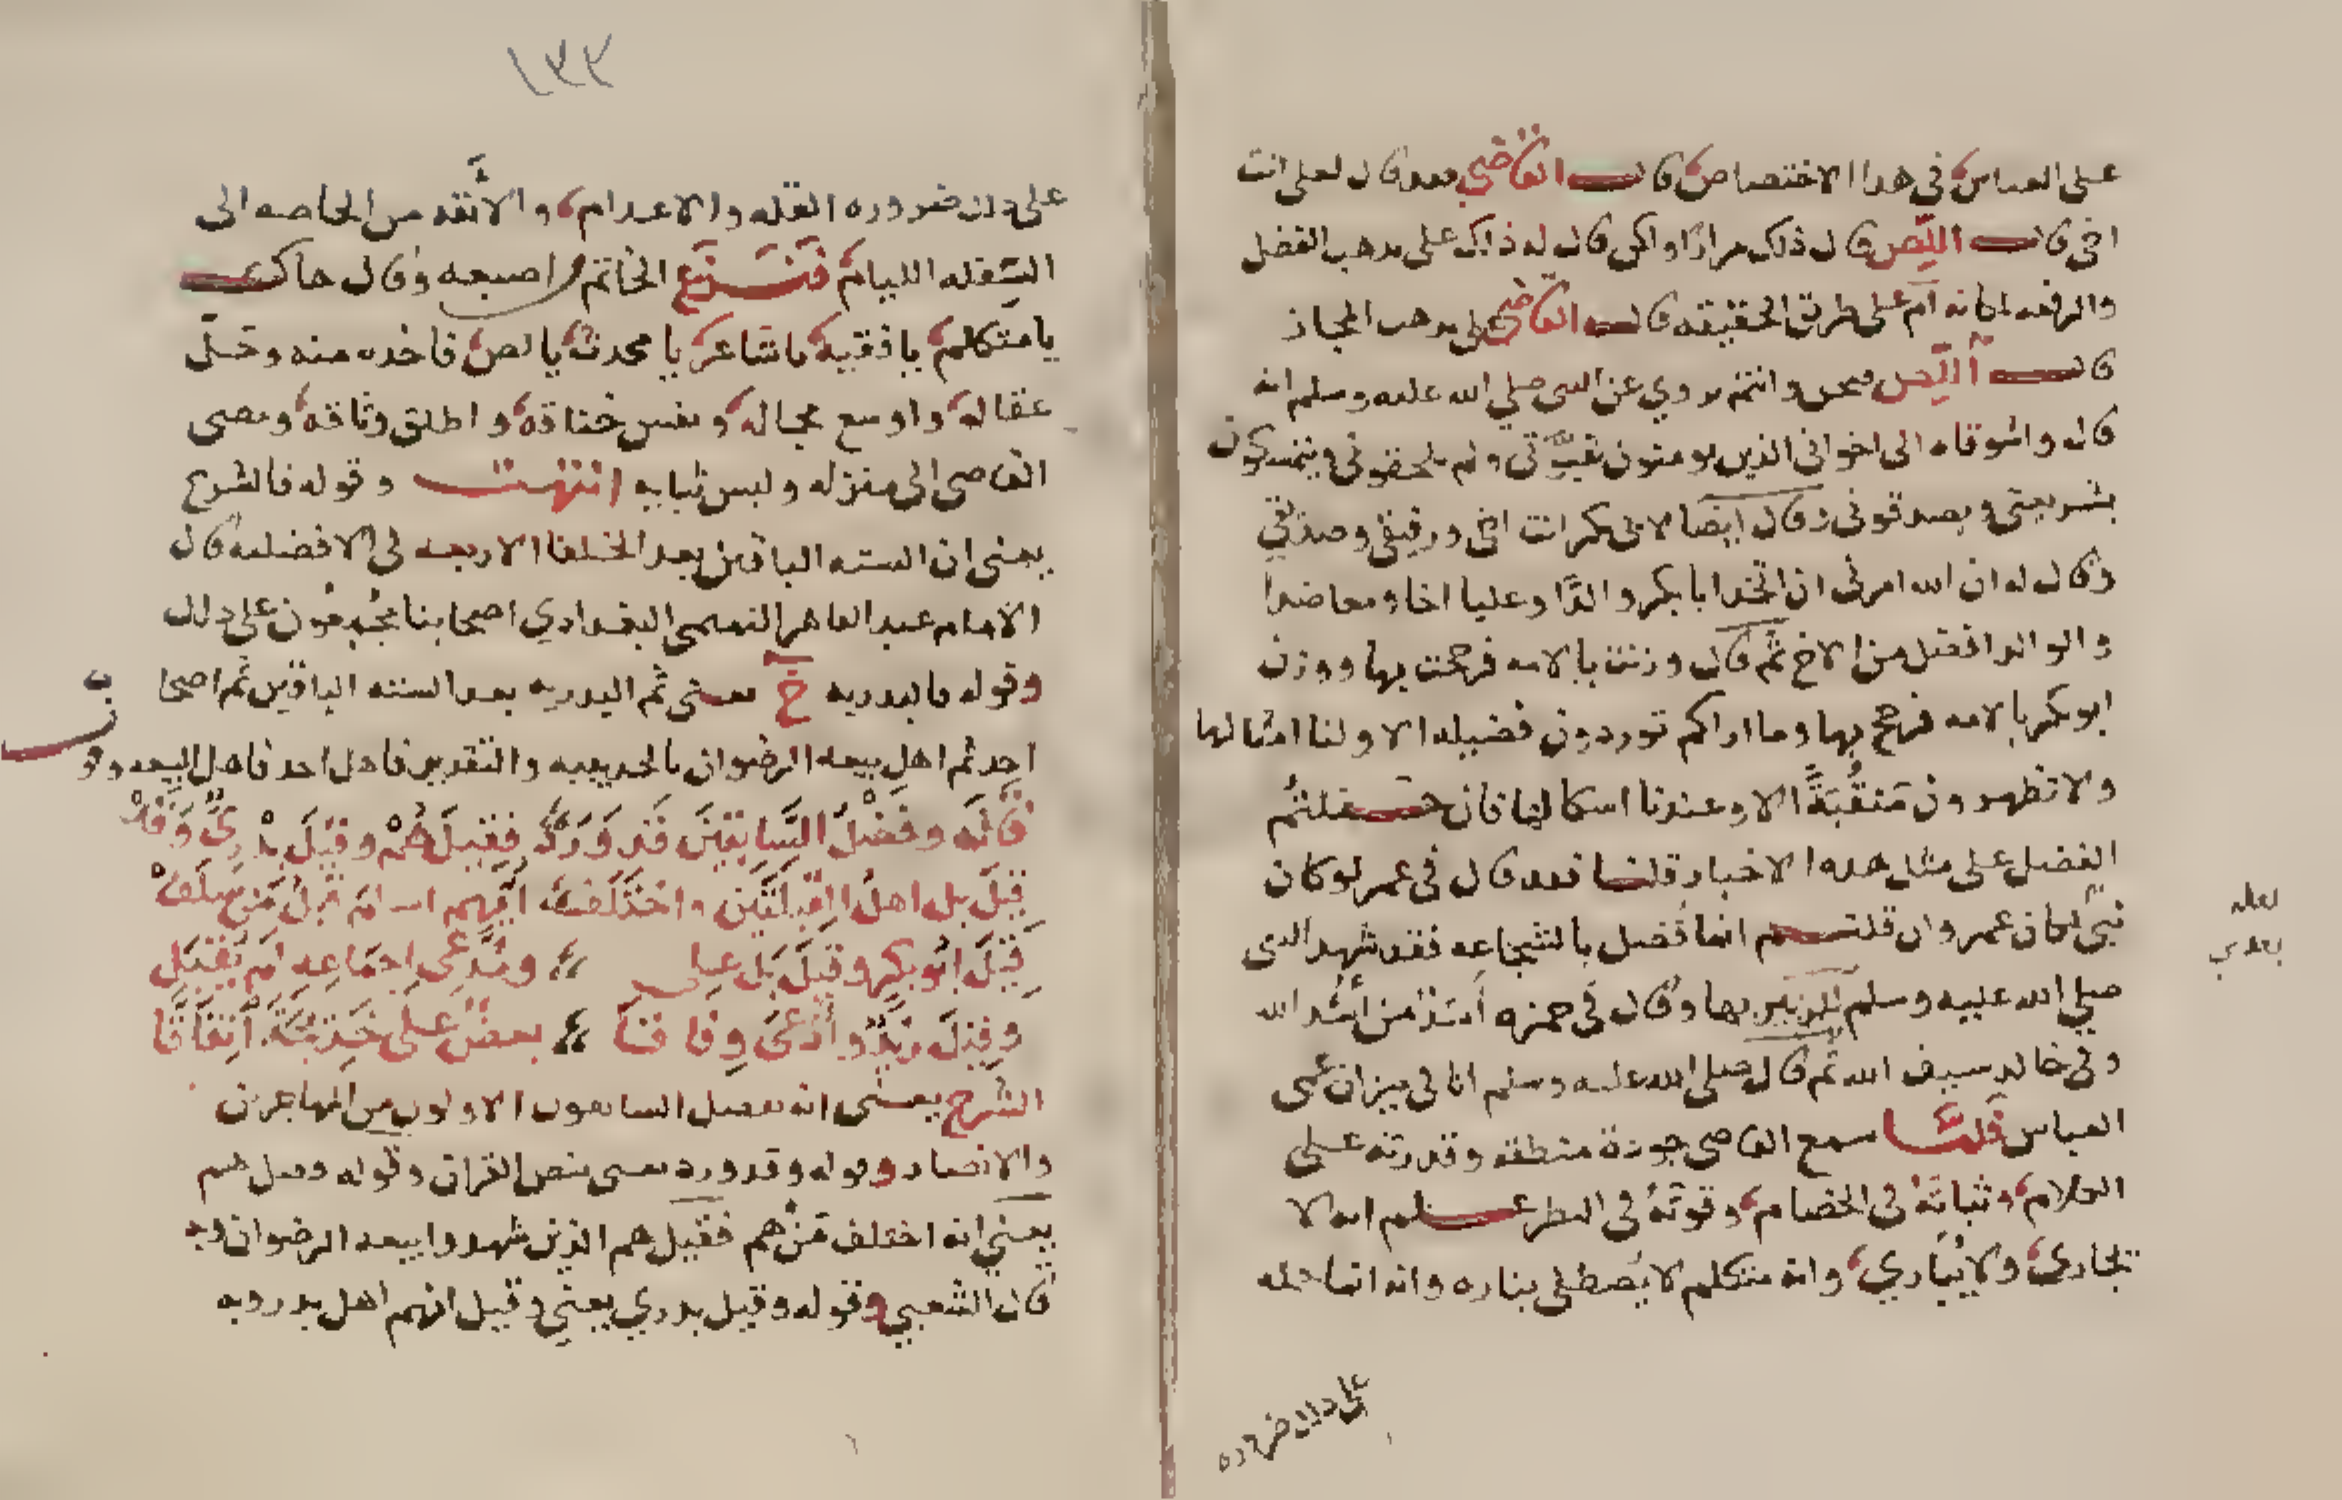 على العباس في هذا الاختصاص قال القاضي فقد قال لعلي انت
اخي قال اللص قال ذلك مرارا ولكن قال له ذلك على مذهب الفضل
والرفعه لمكانه ام على طريق الحقيقه قال القاضي على مذهب المجاز
قال اللص فنحن وانتم نروي عن النبي صلى الله عليه وسلم انه
قال واشوقاه الى اخواني الذين يومنون بنبوتي ولم يلحقوني ويتمسكون
بشريعتي ويصدقوني وقال ايضا لابي بكر انت اخي ورفيقي وصديقي
وقال له ان الله امرني ان اتخذ ابا بكر والدا وعليا اخا ومعاضدا
والوالد افضل من الاخ ثم قال وزنت بالامه فرجحت بها ووزن
ابو بكر بالامه فرجح بها وما اراكم توردون فضيله الا ولنا امثالها
ولا تظهرون منقبة الا وعندنا اشكالها فان قلتم
الفضل على مثل هذه الاخبار قلنا فقد قال في عمر لو كان
نبي لكان عمر وان قلتم انما فضل بالشجاعه فقد شهد النبي
صلى الله عليه وسلم للزبير بها وقال في حمزه اسد من أسد الله
وفي خالد سيف الله ثم قال صلى الله عليه وسلم انا في ميزان عمي
العباس فلما سمع القاضي جودة منطقه وقدرته على
الكلام وثباته في الخصام وقوته في النظر علم انه لا
يجارى ولا يبارى وانه متكلم لا يصطلى بناره وانه انما حمله
لعله
بعدي
على ذلك ضروره
١٢٢
على ذلك ضروره القله والاعدام والانفه من الحاجه الى
السفله الليام فنزع الخاتم من اصبعه وقال هاك
يا متكلم يا فقيه يا شاعر يا محدث يا لص فاخذه منه وحل
عقاله واوسع مجاله ونفس خناقه واطلق وثاقه ومضى
القاضي الى منزله ولبس ثيابه انتهت وقوله فالشرع
يعني ان السته الباقين بعد الخلفا الاربعه في الافضليه قال
الامام عبد القاهر التميمي البغدادي اصحابنا مجمعون على ذلك
وقوله فالبدريه خ يعني ثم البدريه بعد السته الباقين ثم اصحاب
احد ثم اهل بيعه الرضوان بالحديبيه والتقدير فاهل احد فاهل البيعه وقو
قاله وفضل السابقين قد ورد فقيل هم وقيل بدري وقد
قيل بل اهل القبلتين واختلف ايهم اسلم قبل من سلف
قيل ابو بكر وقيل بل علي ومدعي اجماعه لم يقبل
وقيل زيد وادعى وفاقا بعض على خديجة اتفاقا
الشرح يعني انه تفضل السابقون الاولون من المهاجرين
والانصار وقوله وقد ورد يعني بنص القران وقوله وقيل هم
يعني انه اختلف من هم فقيل هم الذين شهدوا بيعه الرضوان وبه
قال الشعبي وقوله وقيل بدري يعني وقيل انهم اهل بدر وبه